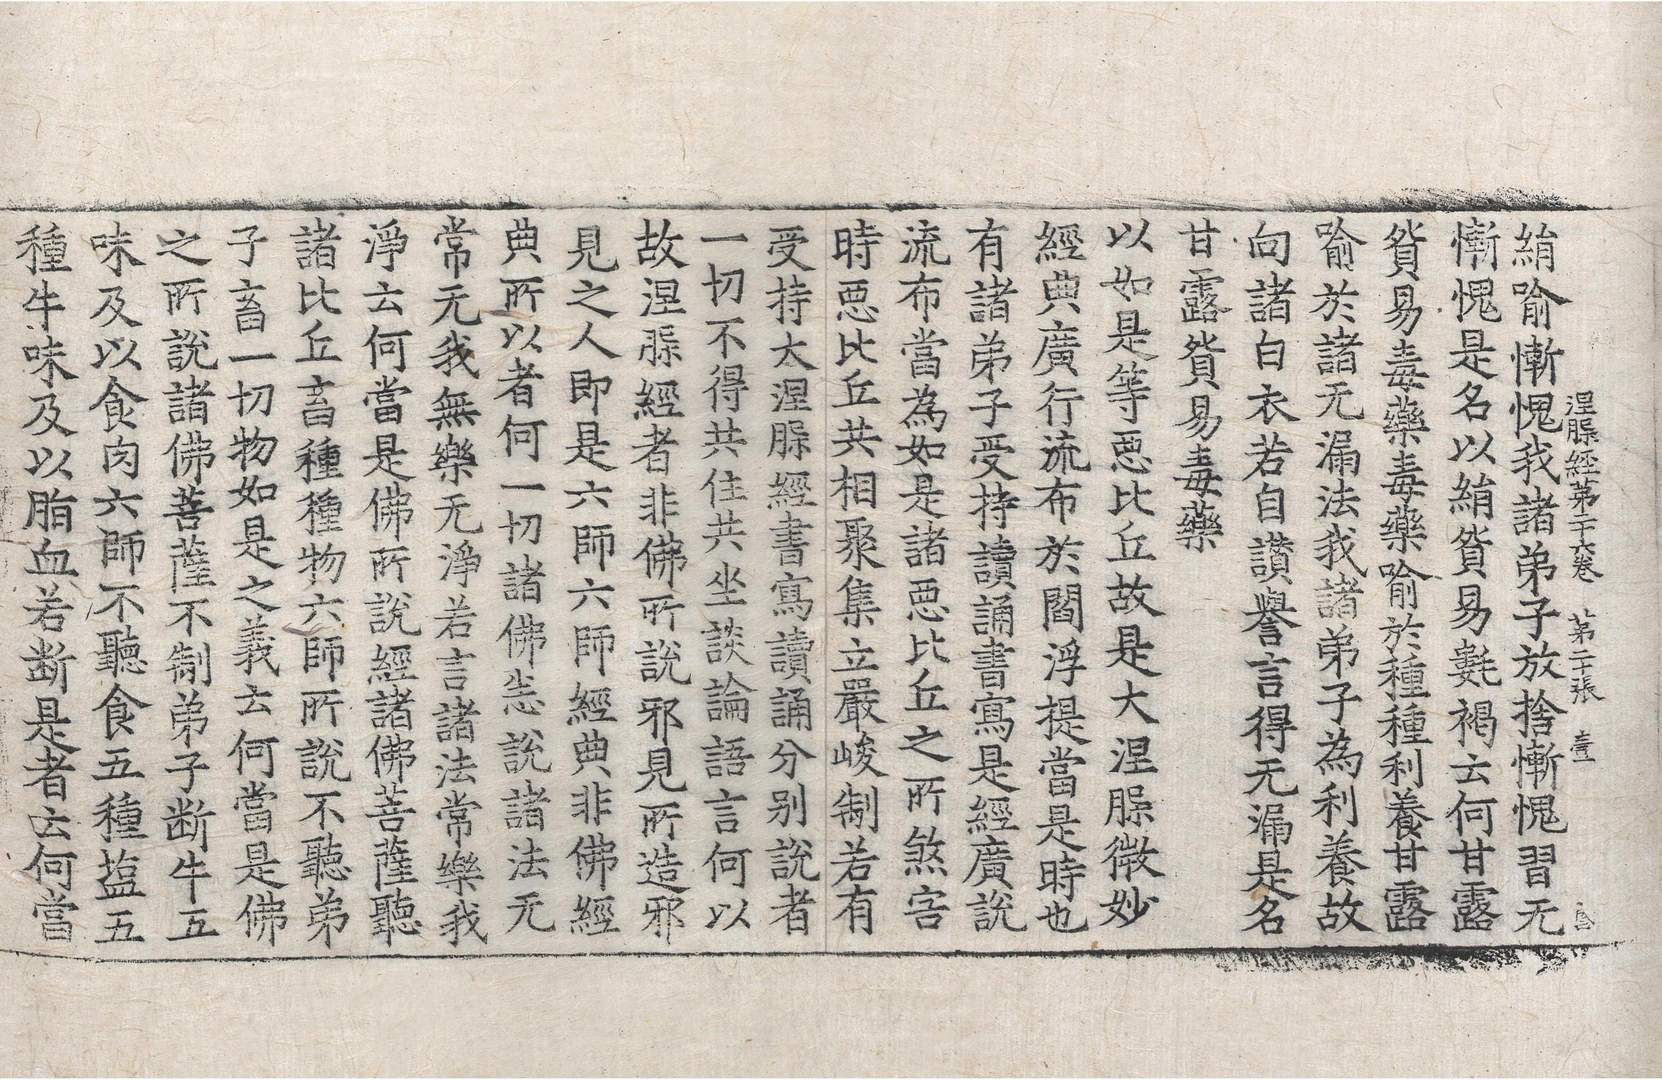 涅槃經第二十六卷　第二十張　壹
絹喻慚愧我諸弟子放捨慚愧習无
慚愧是名以絹貿易㲲褐云何甘露
貿易毒藥毒藥喻於種種利養甘露
喻於諸无漏法我諸弟子為利養故
向諸白衣若自讃譽言得无漏是名
甘露貿易毒藥
以如是等惡比丘故是大涅槃微妙
經典廣行流布於閻浮提當是時也
有諸弟子受持讀誦書寫是經廣說
流布當為如是諸惡比丘之所煞害
時惡比丘共相聚集立嚴峻制若有
受持大涅槃經書寫讀誦分別說者
一切不得共住共坐談論語言何以
故涅槃經者非佛所說邪見所造邪
見之人即是六師六師經典非佛經
典所以者何一切諸佛悉說諸法无
常无我無樂无淨若言諸法常樂我
淨云何當是佛所說經諸佛菩薩聽
諸比丘畜種種物六師所說不聽弟
子畜一切物如是之義云何當是佛
之所說諸佛菩薩不制弟子断牛五
味及以食肉六師不聽食五種塩五
種牛味及以脂血若断是者云何當